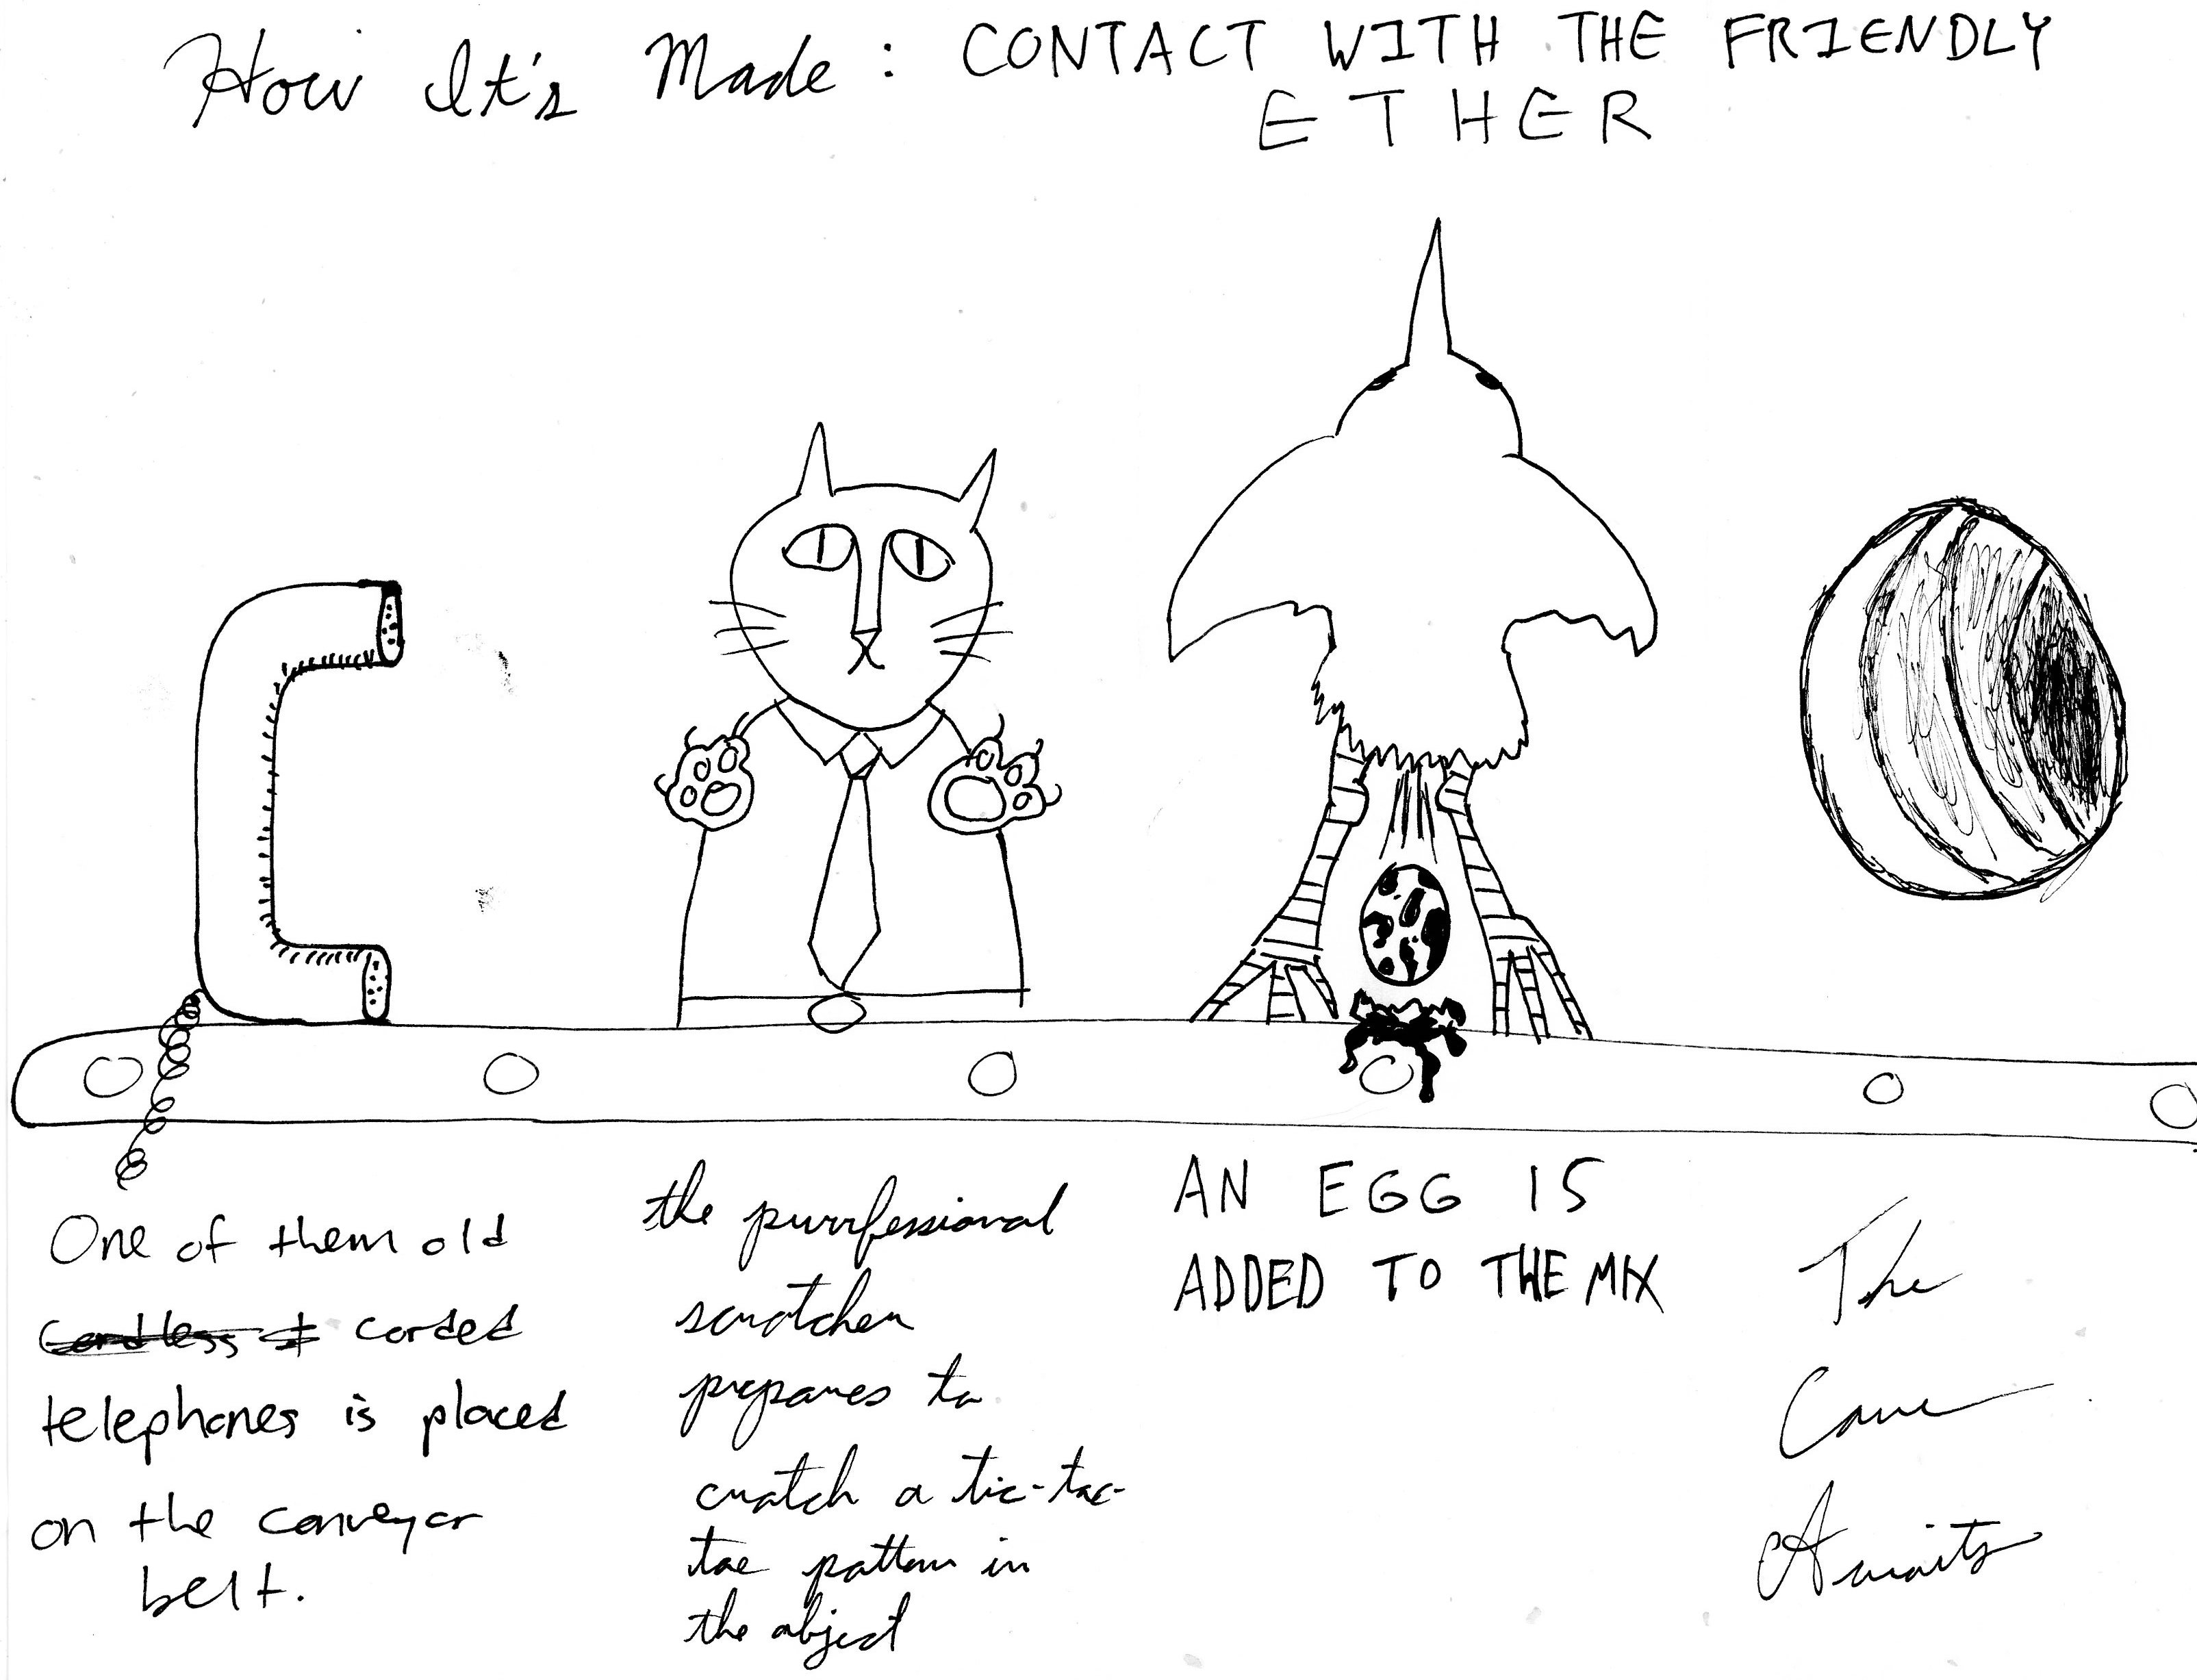 How It's Made: CONTACT WITH THE FRIENDLY
ETHER
One of them old
corded
telephones is placed
on the conveyor
belt.
the purrfessional
scratcher
prepares to
cratch a tic-tac-
toe pattern in
the object
AN EGG IS
ADDED TO THE MIX
The
Cave
Awaits